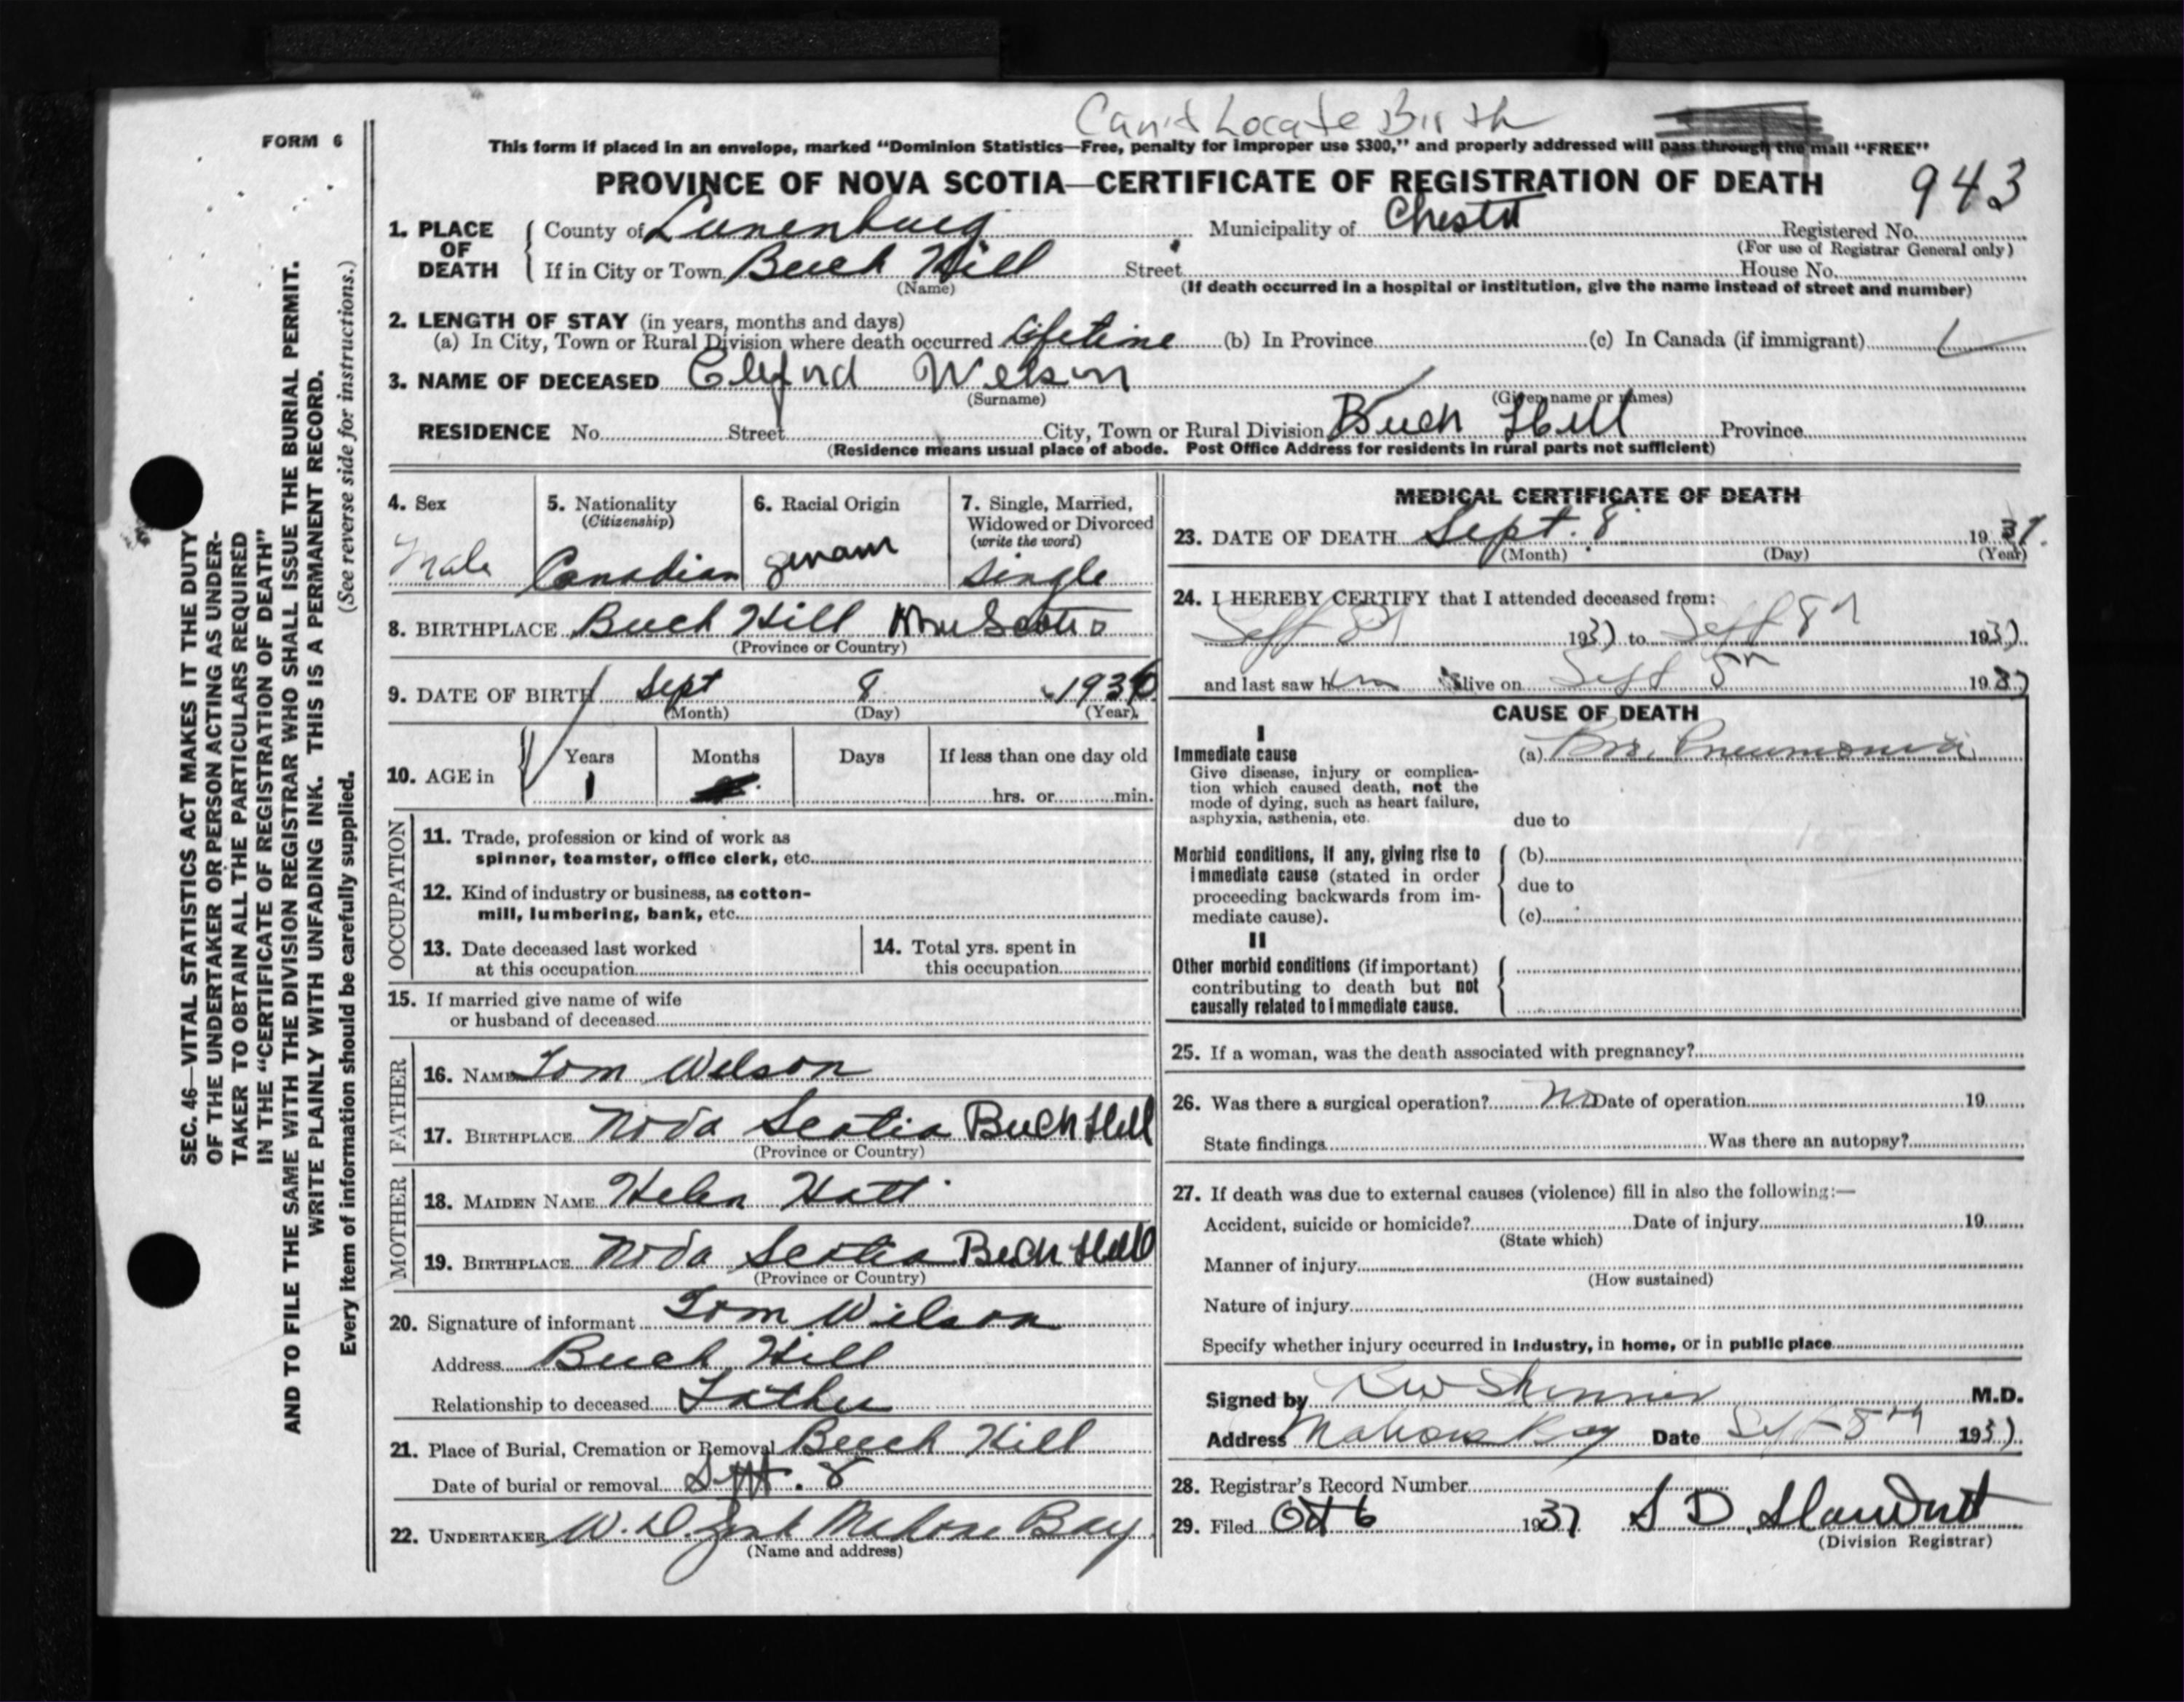 Can't Locate Birth
FORM 6
This form if placed in an envelope, marked "Dominion Statistics—Free, penalty for improper use $300," and properly addressed will pass through the mail "FREE"
PROVINCE OF NOVA SCOTIA—CERTIFICATE OF REGISTRATION OF DEATH
943
1. PLACE OF DEATH County of Lunenburg Municipality of Chester Registered No.
(For use of Registrar General only)
If in City or Town Beech Hill Street House No.
(Name) (If death occurred in a hospital or institution, give the name instead of street and number)
2. LENGTH OF STAY (in years, months and days)
(a) In City, Town or Rural Division where death occurred lifetime (b) In Province (c) In Canada (if immigrant)
3. NAME OF DECEASED Cliford Wilson
(Surname) (Given name or names)
RESIDENCE No. Street City, Town or Rural Division Beech Hill Province
(Residence means usual place of abode. Post Office Address for residents in rural parts not sufficient)
4. Sex Male
5. Nationality (Citizenship) Canadian
6. Racial Origin german
7. Single, Married, Widowed or Divorced (write the word) single
8. BIRTHPLACE Beech Hill Nova Scotia
(Province or Country)
9. DATE OF BIRTH Sept 8 1936
(Month) (Day) (Year)
10. AGE in Years Months Days If less than one day old
1 hrs. or min.
OCCUPATION
11. Trade, profession or kind of work as
spinner, teamster, office clerk, etc.
12. Kind of industry or business, as cotton-
mill, lumbering, bank, etc.
13. Date deceased last worked
at this occupation
14. Total yrs. spent in
this occupation
15. If married give name of wife
or husband of deceased
FATHER
16. NAME Tom Wilson
17. BIRTHPLACE Nova Scotia Beech Hill
(Province or Country)
MOTHER
18. MAIDEN NAME Helen Hatt
19. BIRTHPLACE Nova Scotia Beech Hill
(Province or Country)
20. Signature of informant Tom Wilson
Address Beech Hill
Relationship to deceased Father
21. Place of Burial, Cremation or Removal Beech Hill
Date of burial or removal Sept. 8
22. UNDERTAKER W. D. Mahone Bay
(Name and address)
MEDICAL CERTIFICATE OF DEATH
23. DATE OF DEATH Sept. 8 1937.
(Month) (Day) (Year)
24. I HEREBY CERTIFY that I attended deceased from:
Sept 8th 1937 to Sept 8th 1937
and last saw him alive on Sept 8th 1937
CAUSE OF DEATH
I
Immediate cause
(a) Bro. Pneumonia
Give disease, injury or complica-
tion which caused death, not the
mode of dying, such as heart failure,
asphyxia, asthenia, etc.
due to
Morbid conditions, if any, giving rise to
immediate cause (stated in order
proceeding backwards from im-
mediate cause).
(b)
due to
(c)
II
Other morbid conditions (if important)
contributing to death but not
causally related to immediate cause.
25. If a woman, was the death associated with pregnancy?
26. Was there a surgical operation? No Date of operation 19
State findings Was there an autopsy?
27. If death was due to external causes (violence) fill in also the following:—
Accident, suicide or homicide? Date of injury 19
(State which)
Manner of injury
(How sustained)
Nature of injury
Specify whether injury occurred in industry, in home, or in public place
Signed by Skinner M.D.
Address Mahone Bay Date Sept 8th 1937
28. Registrar's Record Number
29. Filed Oct 6 1937 S D
(Division Registrar)
SEC. 46—VITAL STATISTICS ACT MAKES IT THE DUTY
OF THE UNDERTAKER OR PERSON ACTING AS UNDER-
TAKER TO OBTAIN ALL THE PARTICULARS REQUIRED
IN THE "CERTIFICATE OF REGISTRATION OF DEATH"
AND TO FILE THE SAME WITH THE DIVISION REGISTRAR WHO SHALL ISSUE THE BURIAL PERMIT.
WRITE PLAINLY WITH UNFADING INK. THIS IS A PERMANENT RECORD.
Every item of information should be carefully supplied. (See reverse side for instructions.)